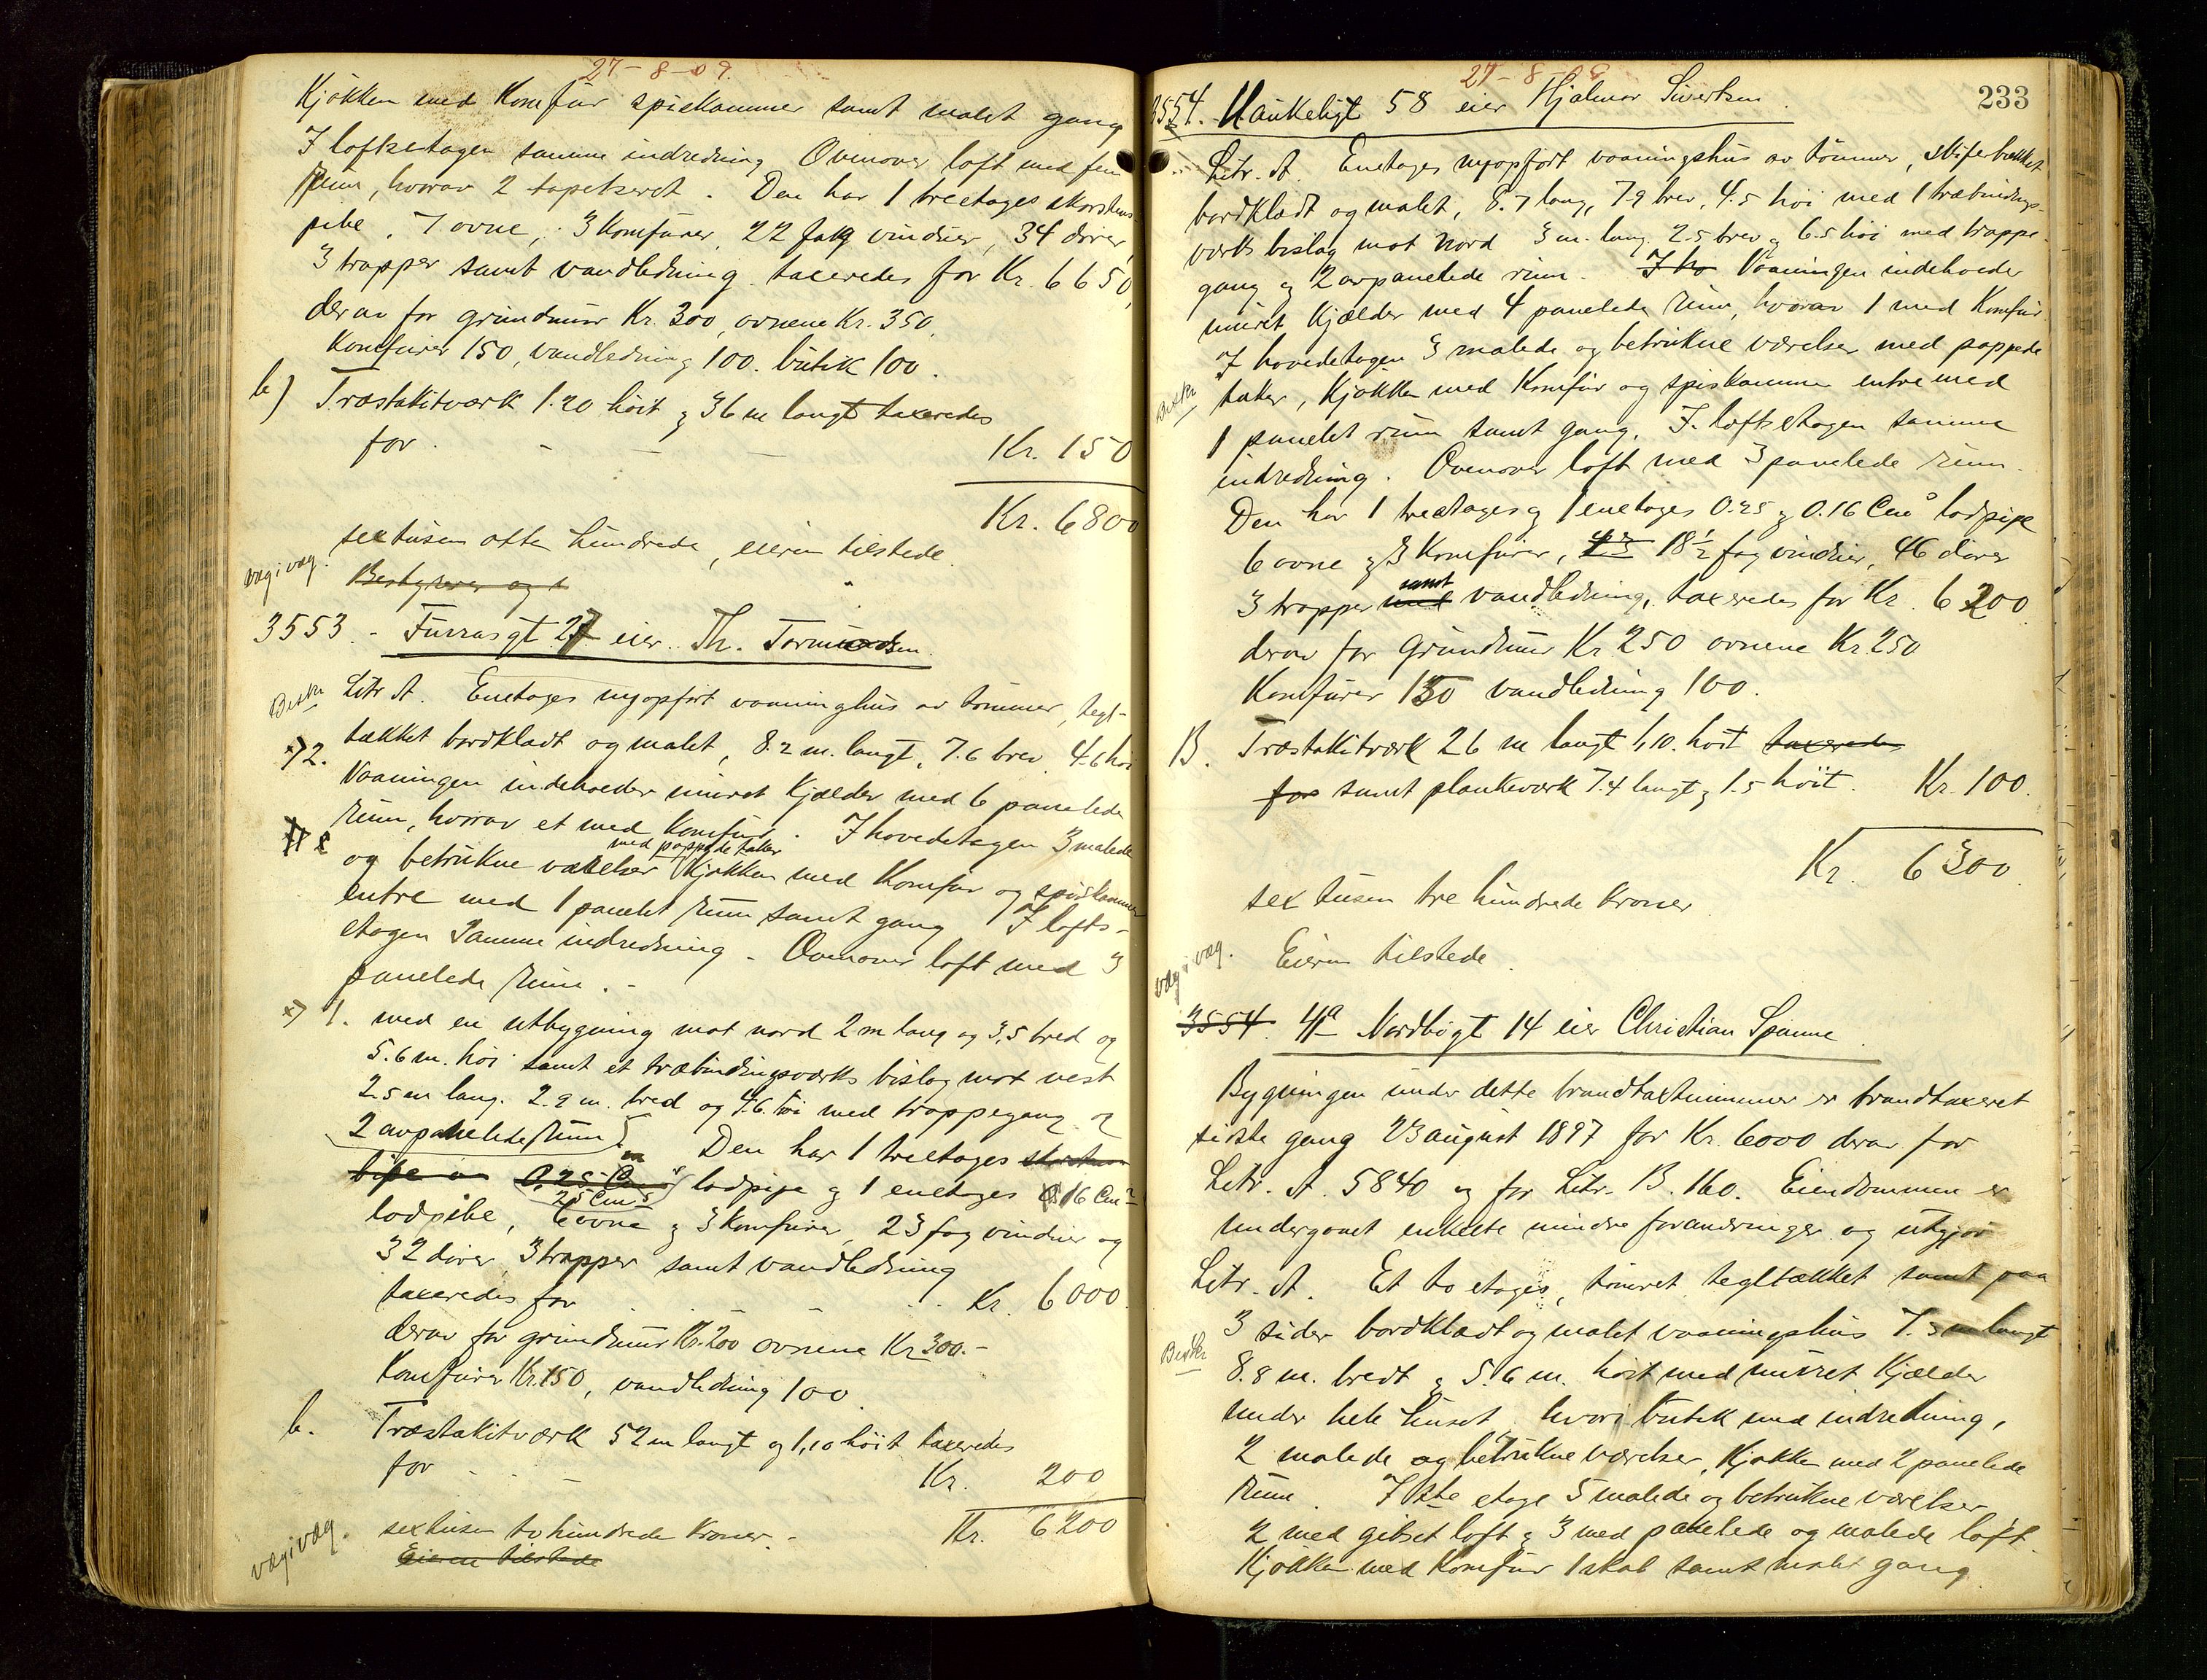 27-8-09.
Kjøkken med Komfur spiskammer samt malet gang
I loftsetagen samme indredning Ovenover loft med fem
rum, hvorav 2 tapetseret. Den har 1 treetages skorstens-
pibe. 7 ovne, 3 Komfurer, 22 fag vinduer, 34 dører,
3 trapper samt vandledning taxeredes for Kr. 6650,
derav for grundmur Kr. 300, ovnene Kr. 350,
Komfurer 150, vandledning 100. butik 100.
b) Træstakitværk 1.20 høit og 36 m langt taxeredes
for - - - Kr. 150
Kr. 6800
sextusen otte hundrede, eieren tilstede.
væg i væg.
Bestyrer og
3553. - Furrasgt 27 eier. Th. Tormodsen.
Beskr
Litr A. Enetages nyopført vaaninghus av tømmer, tegl-
tækket bordklædt og malet, 8.2 m. langt, 7.6 brev 4.6 høi
x) 2. Vaaningen indeholder muret Kjælder med 6 panelede
rum, hvorav et med Komfur. I hovedetagen 3 malede
med pappede taker
og betrukne værelser Kjøkken med Komfur og spiskammer
entre med 1 panelet rum samt gang I lofts-
etagen samme indredning - Ovenover loft med 3
panelede rum. -
x) 1. med en utbygning mot nord 2 m lang og 3,5 bred og
5.6 m. høi samt et træbindingsværks bislag mot vest
2.5 m lang. 2.2 m. bred og 4.6 høi med trappegang og
2 avpanelede rum. Den har 1 treetages
pibe 0.25 Cm lodpipe og 1 enetages 0.16 Cm
25 Cm
lodpibe, 6 ovne og 3 Komfurer, 23 fag vinduer og
32 dører, 3 trapper samt vandledning
taxeredes for - - - Kr. 6000.
derav for grundmur Kr. 200 ovnene Kr 300.-
Komfurer Kr. 150, vandledning 100
b. Træstakitværk 52 m langt og 1,10 høit taxeredes
for - - - Kr. 200
sextusen to hundrede kroner. - Kr. 6200
væg i væg.
Eieren tilstede
27-8-09
233
3554. Haukeligt 58 eier Hjalmar Sivertsen.
Litr. A. Enetages nyopført vaaningshus av tømmer, skifertækket
bordklædt og malet, 8.7 lang, 7.9 brev, 4.5 høi med 1 træbindings-
værks bislag mot Nord 3 m. lang 2.5 brev og 6.5 høi med trappe-
gang og 2 avpanelede rum. I ho Vaaningen indeholder
muret Kjælder med 4 panelede rum, hvorav 1 med Komfur
I hovedetagen 3 malede og betrukne værelser med pappede
Beskr
taker, Kjøkken med Komfur og spiskammer entre med
1 panelet rum samt gang. I loftsetagen samme
indredning. Ovenover loft med 3 panelede rum.
Den har 1 treetages og 1 enetages 0.25 og 0.16 Cm lodpipe
6 ovne og 3 Komfurer, 18 1/2 fag vinduer, 46 dører
samt
3 trapper med vandledning, taxeredes for Kr. 6200
derav for Grundmur Kr 250 ovnene Kr 250
Komfurer 150 vandledning 100.
B. Træstakitværk 26 m langt 1,10. høit taxeredes
for samt plankeværk 7.4 langt og 1.5 høit. Kr. 100.
Kr. 6300.
sex tusen tre hundrede kroner
væg i væg.
Eieren tilstede.
3554. 4a Nordbøgt 14 eier Christian Spanne.
Bygningen under dette brandtaxtnummer er brandtaxeret
sidste gang 23 august 1897 for Kr. 6000 derav for
Litr. A. 5840 og for Litr. B. 160. Eiendommen er
undergaaet enkelte mindre forandringer og utgjør
Litr. A. Et to etages, tømret tegltækket samt paa
3 sider bordklædt og malet vaaningshus 7.5 m langt
Beskr
8.8 m. bredt og 5.6 m. høit med muret Kjælder
under hele huset, hvori butik med indredning,
2 malede og betrukne værelser, Kjøkken med 2 panelede
rum. I 1ste etage 5 malede og betrukne værelser
2 med gibset loft og 3 med panelede og malede loft.
Kjøkken med Komfur 1 skab samt malet gang